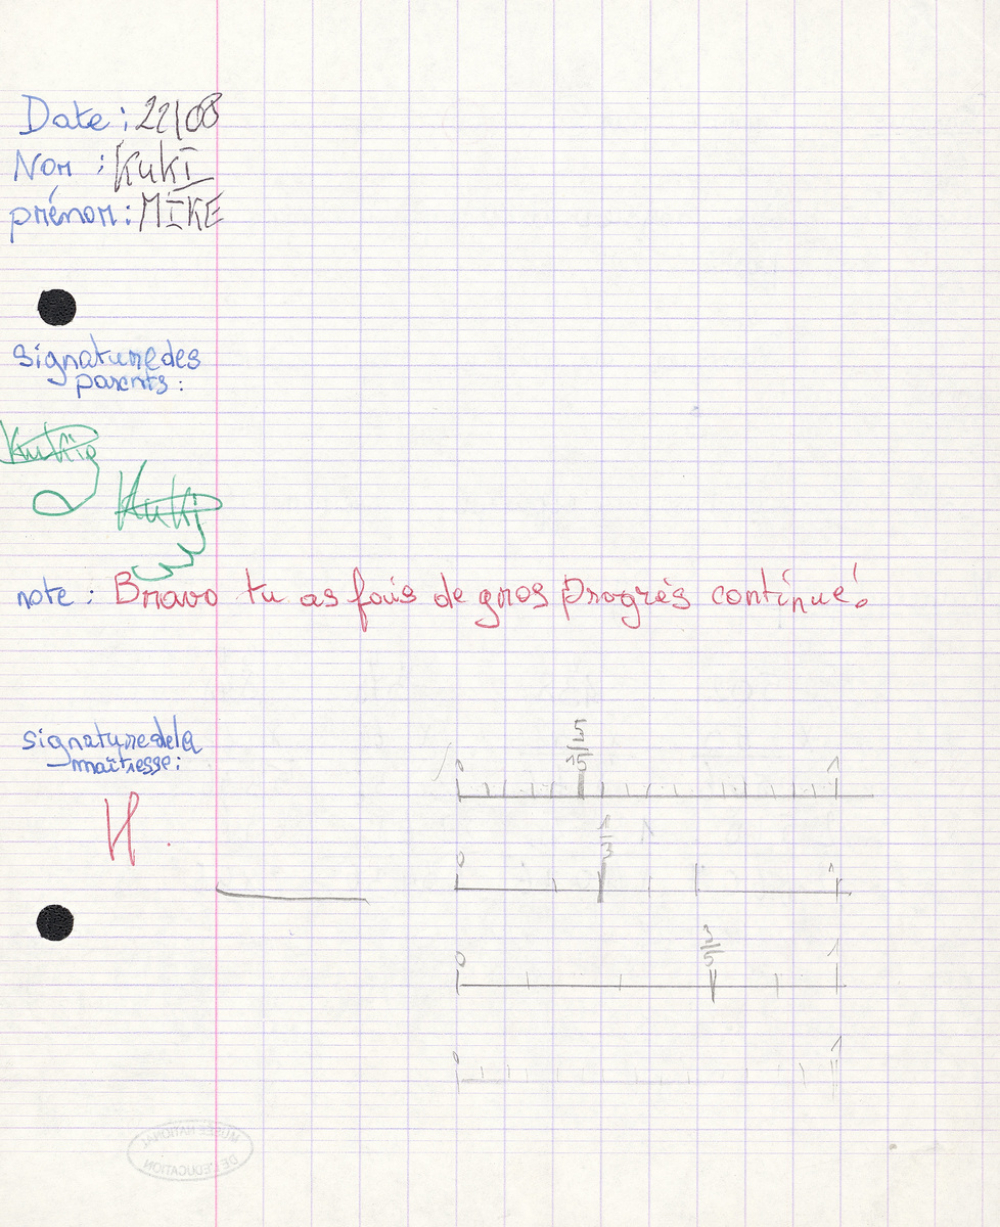 Date : 22/08
Nom : KUKI
prénom : MIKE
signature des
parents :
note : Bravo tu as fais de gros progrès continue !
signature de la
maîtresse :
H.
5
15
0 1
1
3
0 1
3
5
0 1
0 1
MUSÉE NATIONAL
DE L'EDUCATION